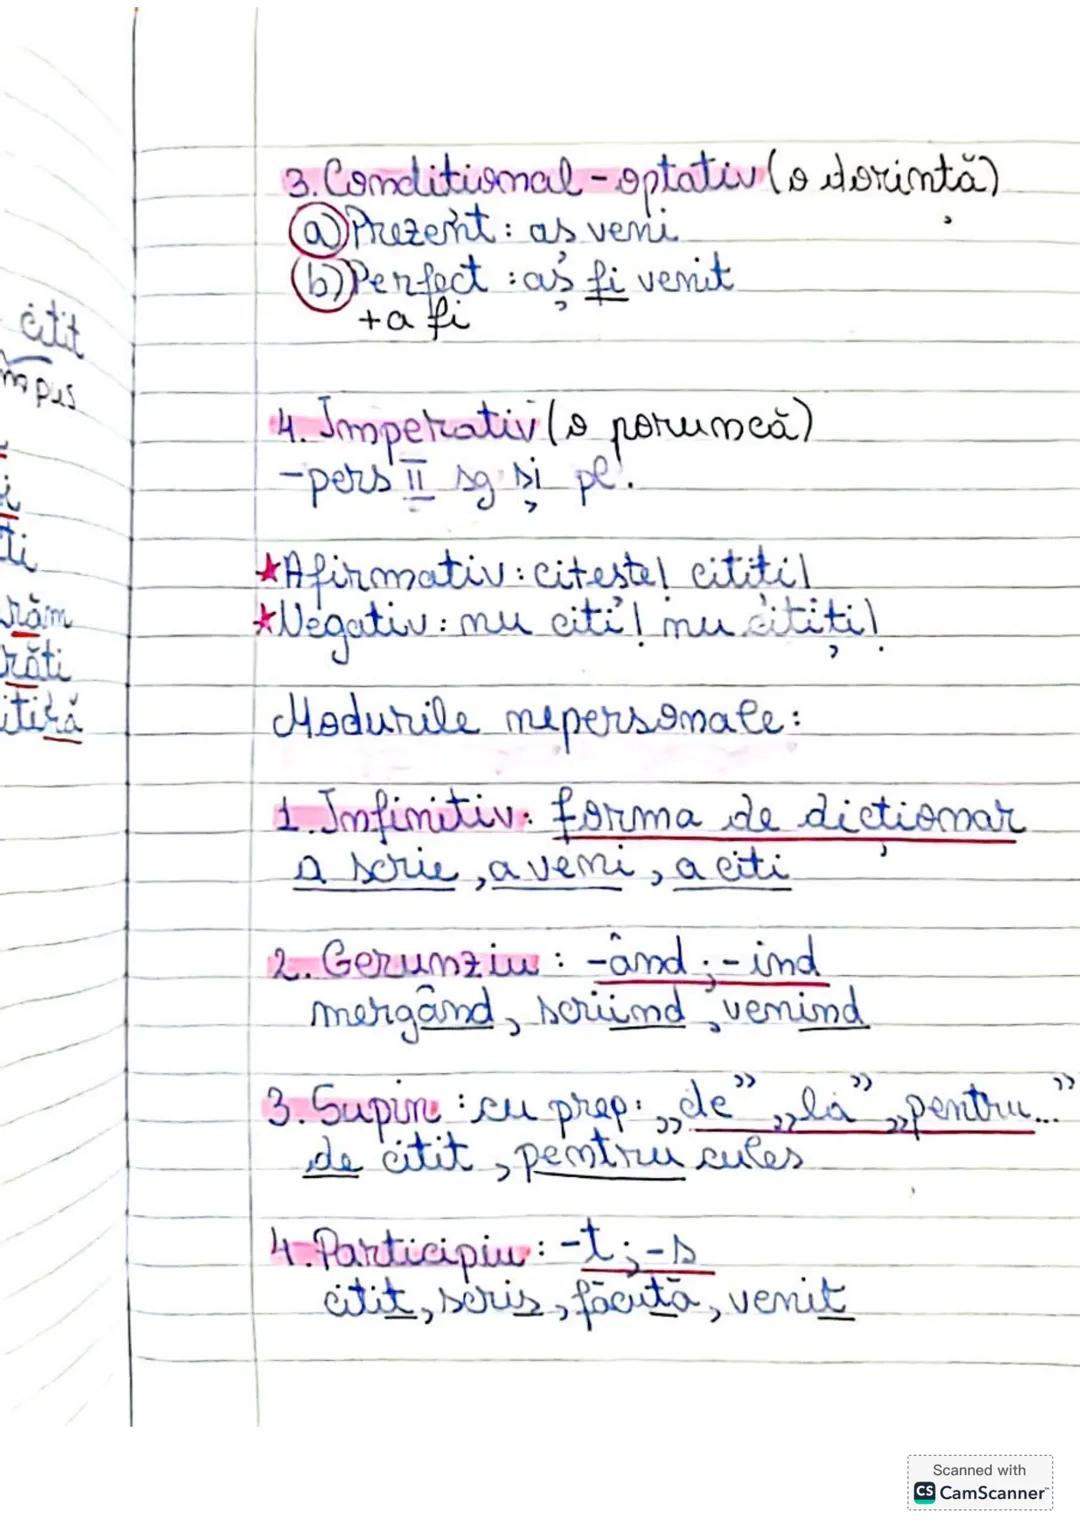 citit
mpus
i
ti
răm
răti
itiră
3. Conditional-optativ (o dorință)
a) Prezent: as veni
b) Perfect: aș fi venit
+a fi
4. Imperativ (o poruncă)
-pers II sg și pl.
★Afirmativ: citeste! cititi!
★Negativ: nu citi! nu citiți!
Modurile nepersonale:
1. Infinitiv: forma de dicționar
a scrie, a veni, a citi
2. Gerunziu: -ând; -ind
mergând, scriind, venind
3. Supin: cu prep: „de” „la” „pentru...”
de citit, pentru cules
4. Participiu: -t; -s
citit, scris, făcută, venit
Scanned with
CS CamScanner